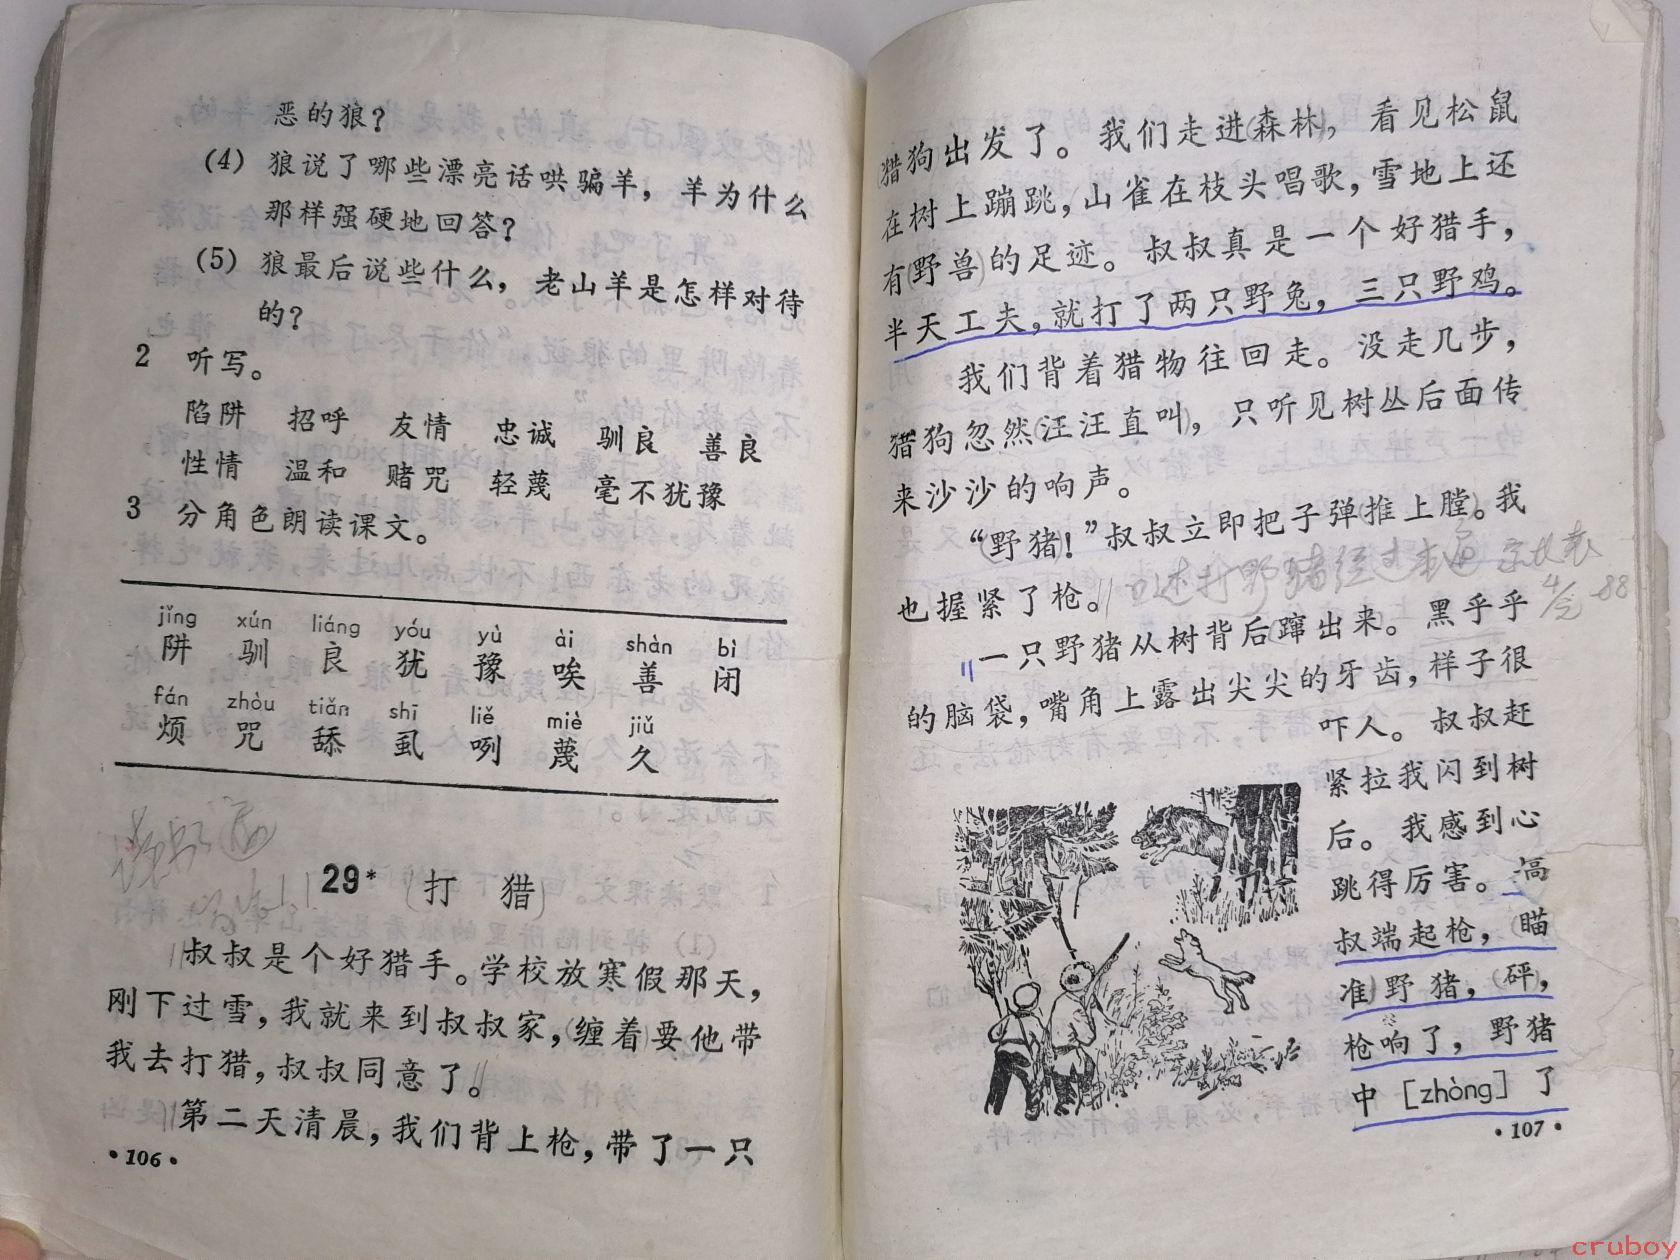 恶的狼？
(4) 狼说了哪些漂亮话哄骗羊，羊为什么
那样强硬地回答？
(5) 狼最后说些什么，老山羊是怎样对待
的？
2 听写。
陷阱 招呼 友情 忠诚 驯良 善良
性情 温和 赌咒 轻蔑 毫不犹豫
3 分角色朗读课文。
jǐng xún liáng yóu yù ài shàn bì
阱 驯 良 犹 豫 唉 善 闭
fán zhòu tiǎn shī liě miè jiǔ
烦 咒 舔 虱 咧 蔑 久
29* 打 猎
叔叔是个好猎手。学校放寒假那天，
刚下过雪，我就来到叔叔家，缠着要他带
我去打猎，叔叔同意了。
第二天清晨，我们背上枪，带了一只
·106·
猎狗出发了。我们走进森林，看见松鼠
在树上蹦跳，山雀在枝头唱歌，雪地上还
有野兽的足迹。叔叔真是一个好猎手，
半天工夫，就打了两只野兔，三只野鸡。
我们背着猎物往回走。没走几步，
猎狗忽然汪汪直叫，只听见树丛后面传
来沙沙的响声。
“野猪！”叔叔立即把子弹推上膛。我
也握紧了枪。
口述打野猪经过
88
一只野猪从树背后蹿出来。黑乎乎
的脑袋，嘴角上露出尖尖的牙齿，样子很
吓人。叔叔赶
紧拉我闪到树
后。我感到心
跳得厉害。
叔端起枪，瞄
准野猪，砰，
枪响了，野猪
中［zhòng］了
·107·
cruboy